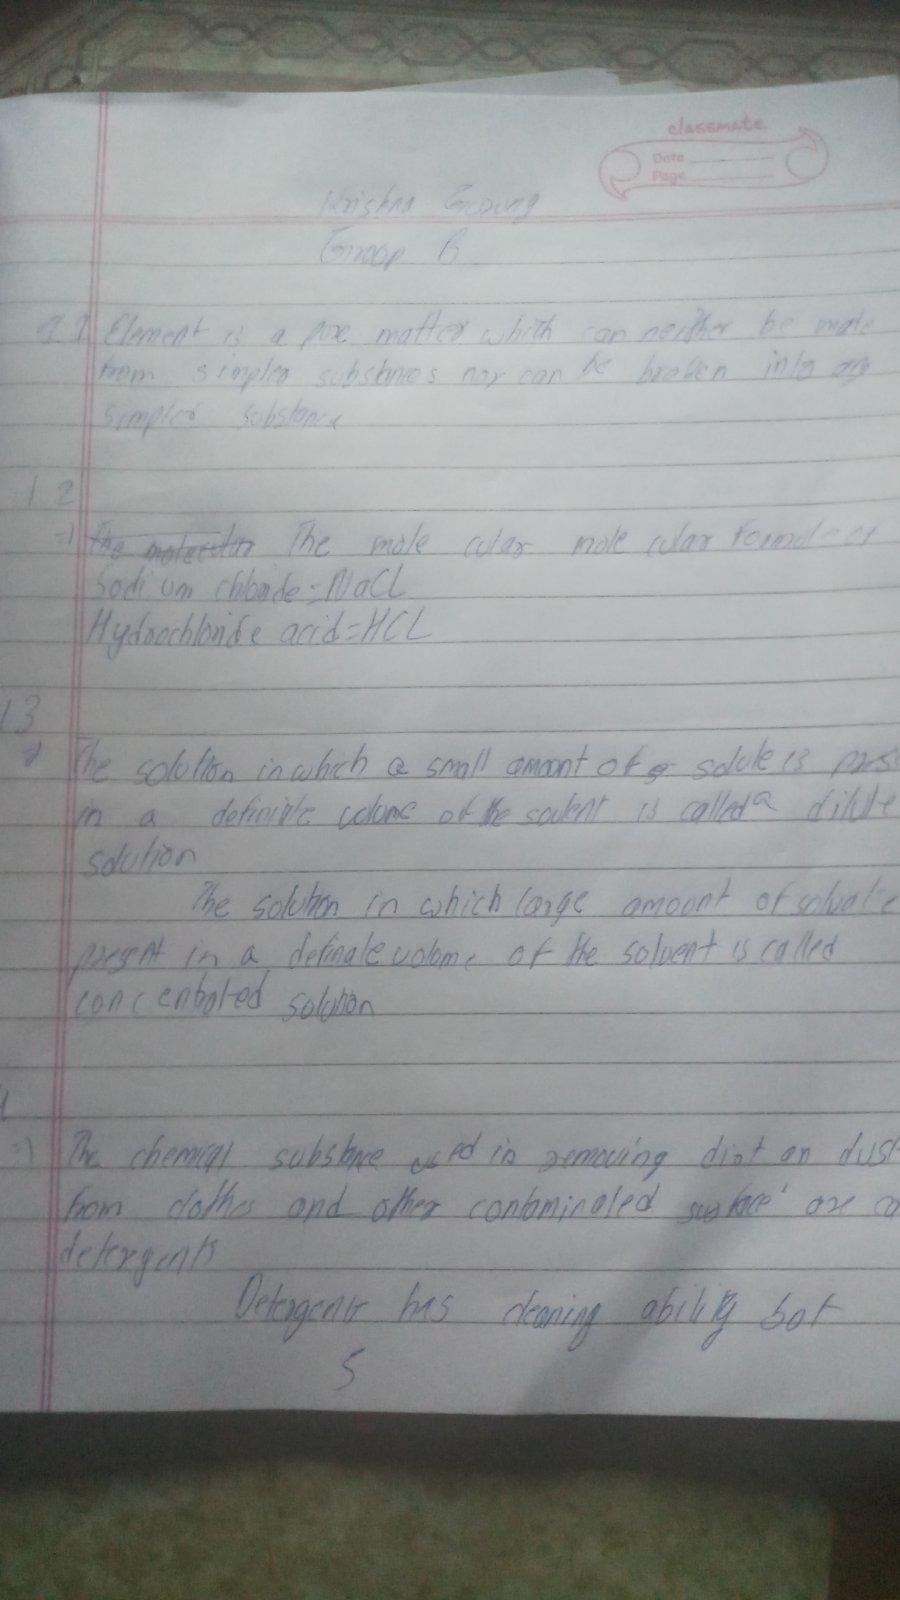 classmate
Date
Page
Krishna Gurung
Group B
Element is a pure matter which can neither be made
from simpler substances nor can be broken into any
simpler substance
12
The molecular The mole cular mole cular Formula of
Sodi um chloride = NaCL
Hydrochloride acid = HCL
13
The solution in which a small amount of solute is pres
in a definirle volume of the solvent is called a dilute
solution
The solution in which large amount of solvate
present in a definate volume of the solvent is called
concentrated solution
The chemical substance used in removing dirt an dust
from clothes and other contaminated surface are ca
detergents
Detergents has cleaning ability but
S